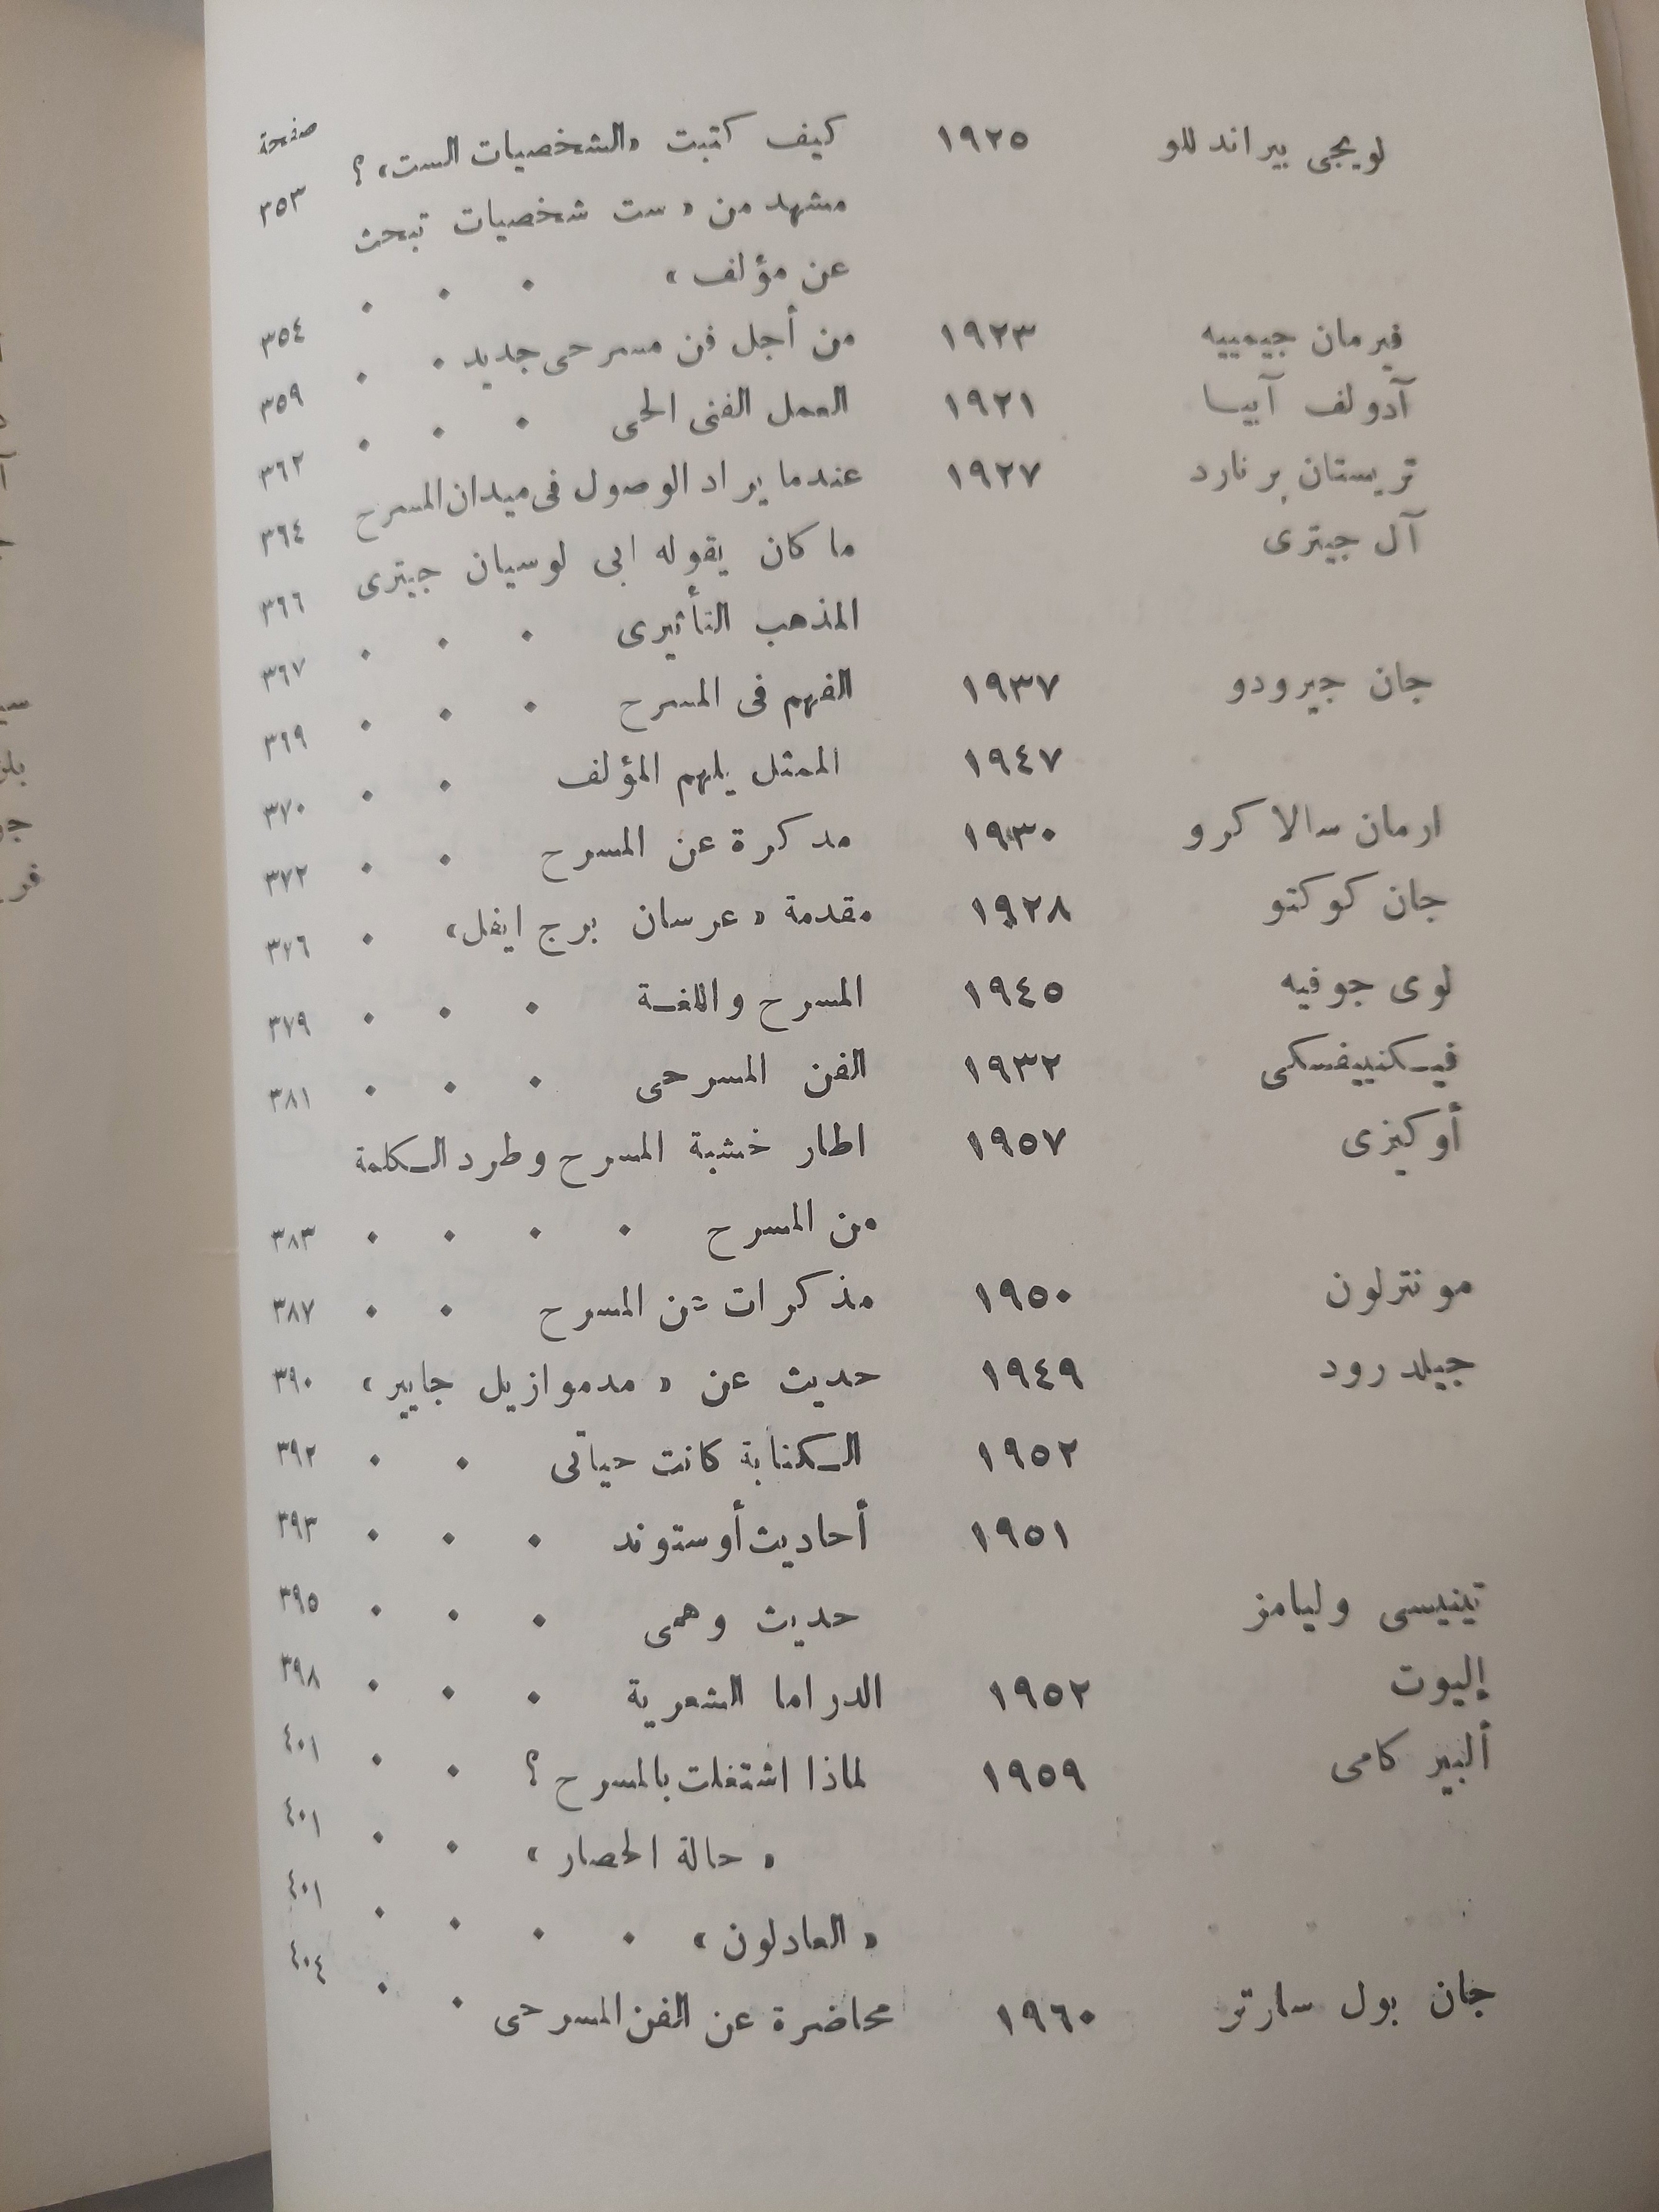 صفحة
لويجى بيراندللو ١٩٢٥ كيف كتبت «الشخصيات الست» ؟ ٣٥٣
مشهد من « ست شخصيات تبحث
عن مؤلف » . . . ٣٥٤
فيرمان جيمييه ١٩٢٣ من أجل فن مسرحى جديد . . ٣٥٩
آدولف آبيا ١٩٢١ العمل الفنى الحى . . . ٣٦٢
تريستان برنارد ١٩٢٧ عندما يراد الوصول فى ميدان المسرح ٣٦٤
آل جيترى ما كان يقوله ابى لوسيان جيترى ٣٦٦
المذهب التأثيرى . . . ٣٦٧
جان جيرودو ١٩٣٧ الفهم فى المسرح . . . ٣٦٩
١٩٤٧ الممثل يلهم المؤلف . . ٣٧٠
ارمان سالاكرو ١٩٣٠ مدكرة عن المسرح . . ٣٧٢
جان كوكتو ١٩٢٨ مقدمة « عرسان برج ايفل» . ٣٧٦
لوى جوفيه ١٩٤٥ المسرح واللغة . . . ٣٧٩
فيسكنييفسكى ١٩٣٢ الفن المسرحى . . . ٣٨١
أوكيزى ١٩٥٧ اطار خشبة المسرح وطرد الكلمة
من المسرح . . . . ٣٨٣
مونترلون ١٩٥٠ مذكرات عن المسرح . . ٣٨٧
جيلدرود ١٩٤٩ حديث عن « مدموازيل جايير » ٣٩٠
١٩٥٢ الكتابة كانت حياتى . . ٣٩٢
١٩٥١ أحاديث أوستوند . . . ٣٩٣
تينيسى وليامز حديث وهمى . . . ٣٩٥
إليوت ١٩٥٢ الدراما الشعرية . . . ٣٩٨
ألبير كامى ١٩٥٩ لماذا اشتغلت بالمسرح ؟ . . ٤٠١
« حالة الحصار » . . ٤٠١
« العادلون » . . . . ٤٠١
جان بول سارتر ١٩٦٠ محاضرة عن الفن المسرحى . . ٤٠٤